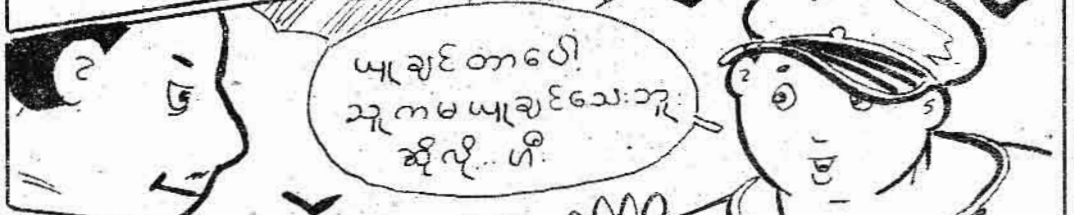 ယူချင်တာပေါ့
သူကမယူချင်သေးဘူး
ဆိုလို့...ဟီး